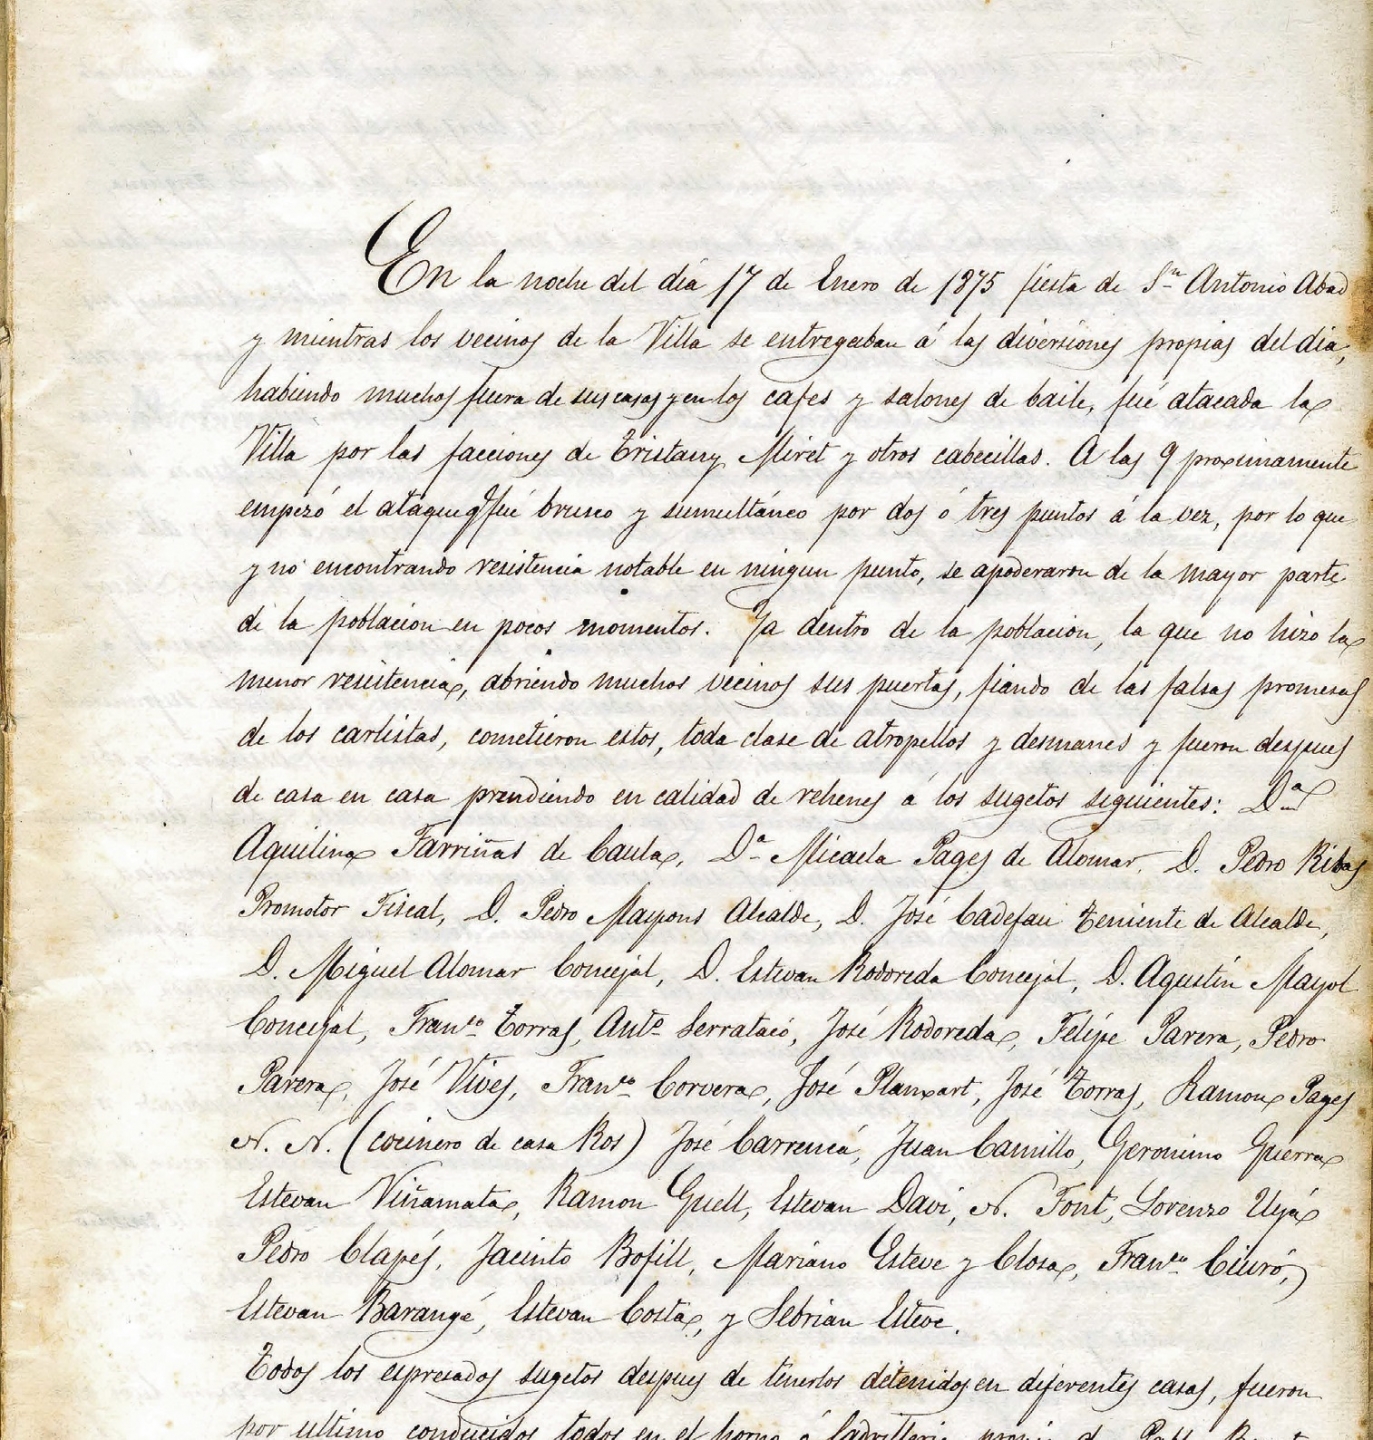 En la noche del dia 17 de Enero de 1875 fiesta de Sn Antonio Abad
y mientras los vecinos de la Villa se entregaban á las diversiones propias del dia,
habiendo muchos fuera de sus casas y en los cafes y salones de baile, fué atacada la
Villa por las facciones de Tristany Miret y otros cabecillas. A las 9 proximamente
empezó el ataque q fué brusco y sumultáneo por dos ó tres puntos á la vez, por lo que
y no encontrando resistencia notable en ningun punto, se apoderaron de la mayor parte
de la poblacion en pocos momentos. Ya dentro de la poblacion, la que no hizo la
menor resistencia, abriendo muchos vecinos sus puertas, fiando de las falsas promesas
de los carlistas, cometieron estos, toda clase de atropellos y desmanes y fueron despues
de casa en casa prendiendo en calidad de rehenes á los sugetos siguientes: Da
Aquilina Farriñas de Caula, Da Micaela Pages de Alomar, D. Pedro Ribas
Promotor Fiscal, D. Pedro Maspons Alcalde, D. José Cadefau Teniente de Alcalde,
D. Miguel Alomar Concejal, D. Estevan Rodoreda Concejal, D. Agustín Mayol
Concejal, Franco Torras, Anto Serratacó, José Rodoreda, Felipe Parera, Pedro
Parera, José Vives, Franco Corvera, José Planxart, José Torras, Ramon Pages
N. N. (cocinero de casa Ros) José Carrencá, Juan Camillo, Geronimo Guerra
Estevan Viñamata, Ramon Guell, Estevan Davi, N. Font, Lorenzo
Pedro Clapés, Jacinto Bofill, Mariano Esteve y Closa, Franco Ciuró,
Estevan Barangé, Estevan Costa, y Sebrian Esteve.
Todos los espresados sugetos despues de tenerlos detenidos en diferentes casas, fueron
por ultimo conducidos todos en el horno ó ladrilleria propia de Pablo